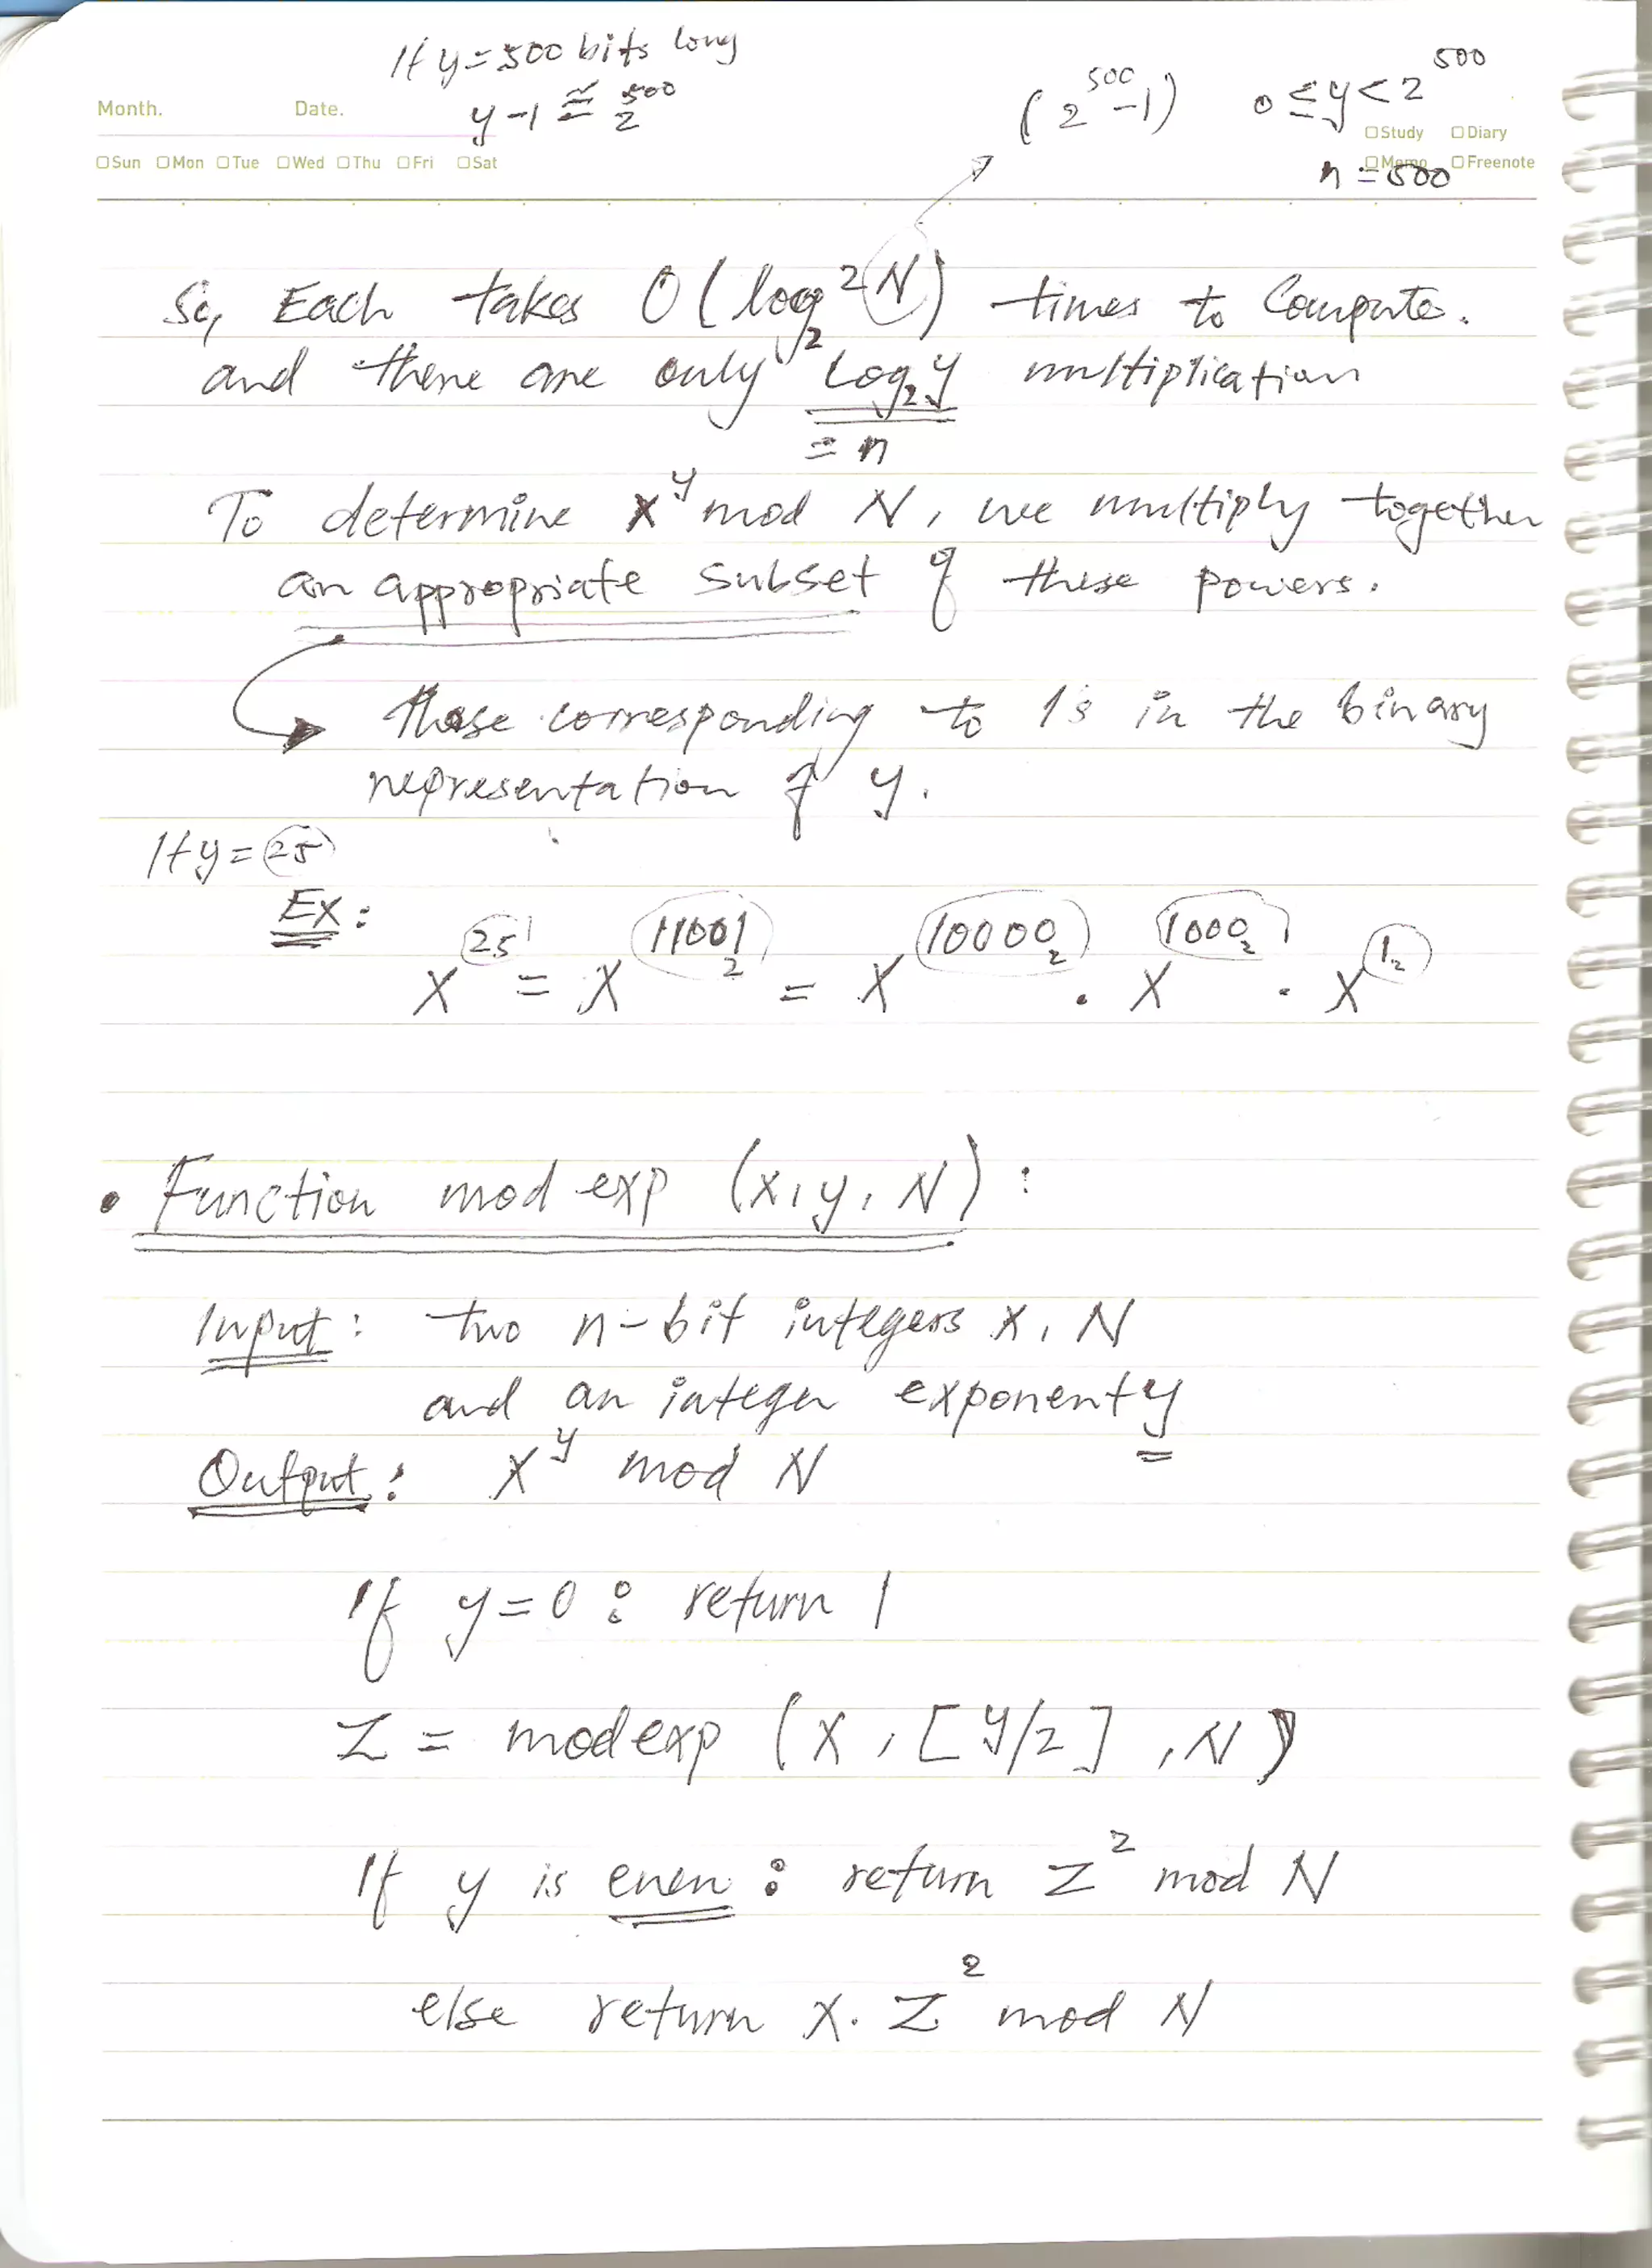 If y = 500 bits long
y - 1 ≅ 2^500
(2^500 - 1)
0 ≤ y < 2^500
Month. Date.
□Study □Diary
□Sun □Mon □Tue □Wed □Thu □Fri □Sat
□Memo □Freenote
n = 500
So, Each takes O(log₂²N) times to Compute.
and there are only log₂y multiplication
= n
To determine x^y mod N, we multiply together
an appropriate subset of these powers.
those corresponding to 1's in the binary
representation of y.
If y = 25
Ex:
x^25 = x^11001₂ = x^10000₂ · x^1000₂ · x^1₂
• Function modexp (x, y, N) :
Input : two n-bit integers x, N
and an integer exponent y
Output : x^y mod N
If y = 0 : return 1
Z = modexp (x, [y/2], N)
If y is even : return Z² mod N
else return x. Z² mod N